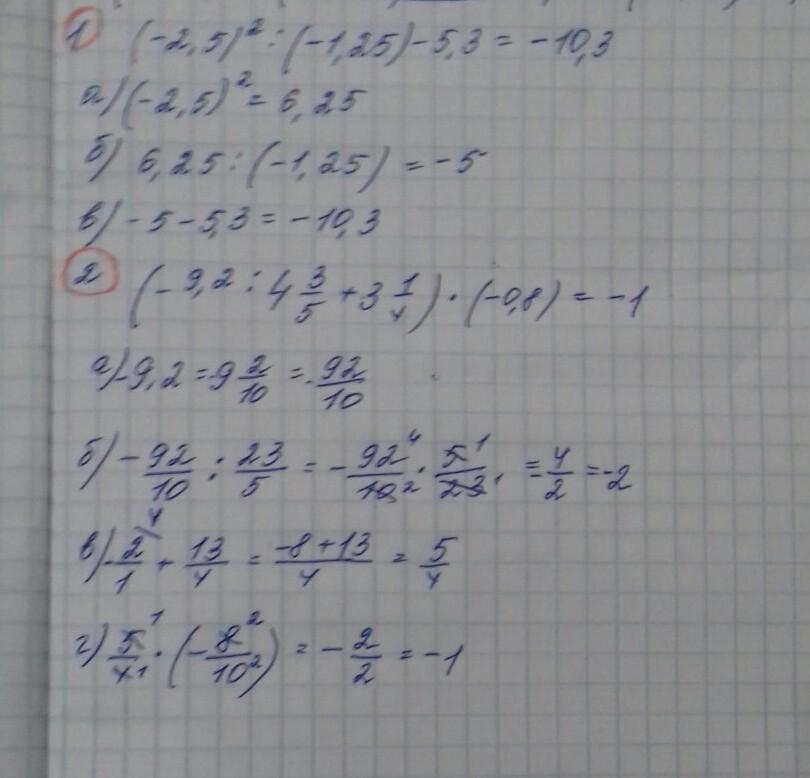 1 (-2,5)² : (-1,25) - 5,3 = -10,3
а) (-2,5)² = 6,25
б) 6,25 : (-1,25) = -5
в) -5 - 5,3 = -10,3
2 (-9,2 : 4 3/5 + 3 1/4) · (-0,8) = -1
а) -9,2 = -9 2/10 = -92/10
б) -92/10 : 23/5 = -92⁴/10₂ · 5¹/23₁ = -4/2 = -2
в) -2/1 ⁴ + 13/4 = -8+13/4 = 5/4
г) 5¹/4₁ · (-8²/10₂) = -2/2 = -1